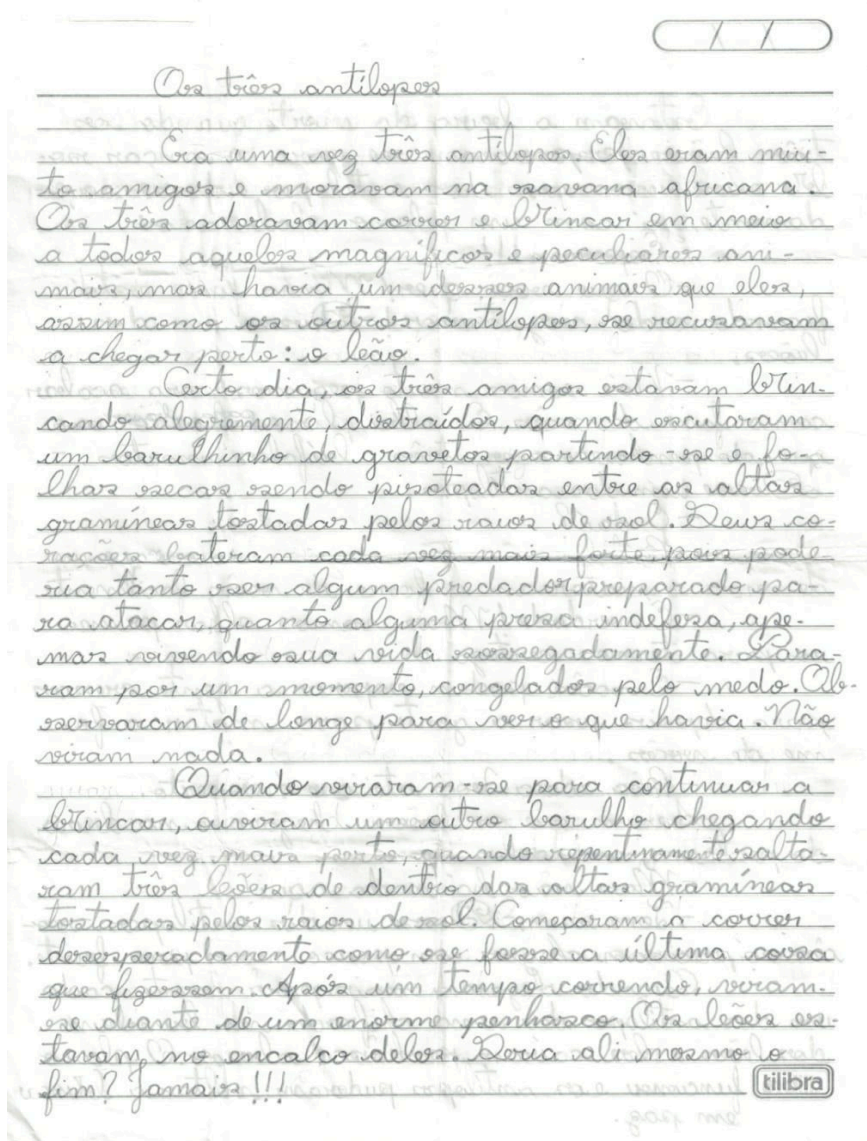 Os três antílopes
Era uma vez três antílopes. Eles eram mui-
to amigos e moravam na savana africana.
Os três adoravam correr e brincar em meio
a todos aqueles magníficos e peculiares ani-
mais, mas havia um desses animais que eles,
assim como os outros antílopes, se recusavam
a chegar perto: o leão.
Certo dia, os três amigos estavam brin-
cando alegremente, distraídos, quando escutaram
um barulhinho de gravetos partindo-se e fo-
lhas secas sendo pisoteadas entre as altas
gramíneas tostadas pelos raios de sol. Seus co-
rações bateram cada vez mais forte, pois pode
ria tanto ser algum predador preparado pa-
ra atacar, quanto alguma presa indefesa, ape-
nas vivendo sua vida sossegadamente. Para-
ram por um momento, congelados pelo medo. Ob-
servaram de longe para ver o que havia. Não
viram nada.
Quando viraram-se para continuar a
brincar, ouviram um outro barulho chegando
cada vez mais perto, quando repentinamente salta-
ram três leões de dentro das altas gramíneas
tostadas pelos raios de sol. Começaram a correr
desesperadamente como se fosse a última coisa
que fizessem. Após um tempo correndo, viram-
se diante de um enorme penhasco. Os leões es-
tavam no encalço deles. Seria ali mesmo o
fim? Jamais!!!
tilibra